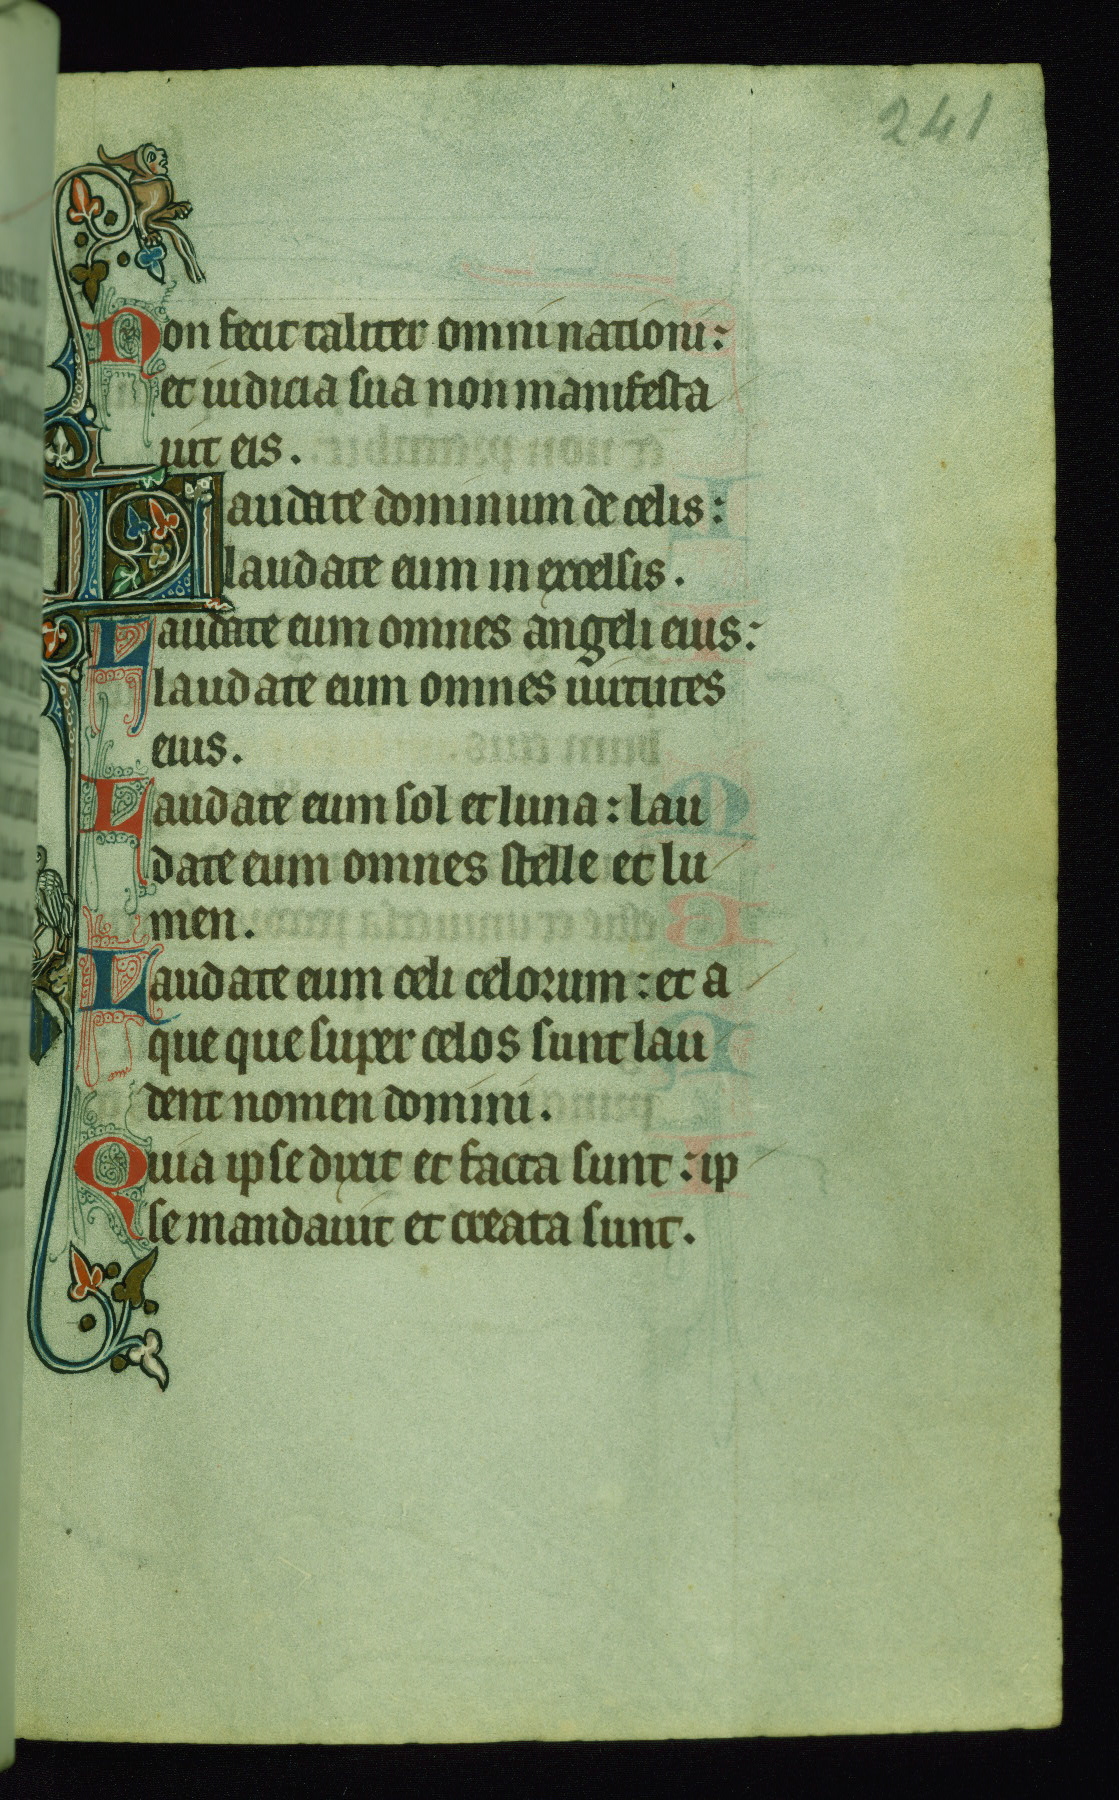 241
Non fecit taliter omni nationi:
et iudicia sua non manifesta
uit eis.
Laudate dominum de celis:
laudate eum in excelsis.
Laudate eum omnes angeli eius:
laudate eum omnes uirtutes
eius.
Laudate eum sol et luna: lau
date eum omnes stelle et lu
men.
Laudate eum celi celorum: et a
que que super celos sunt lau
dent nomen domini.
Quia ipse dixit et facta sunt: ip
se mandauit et creata sunt.